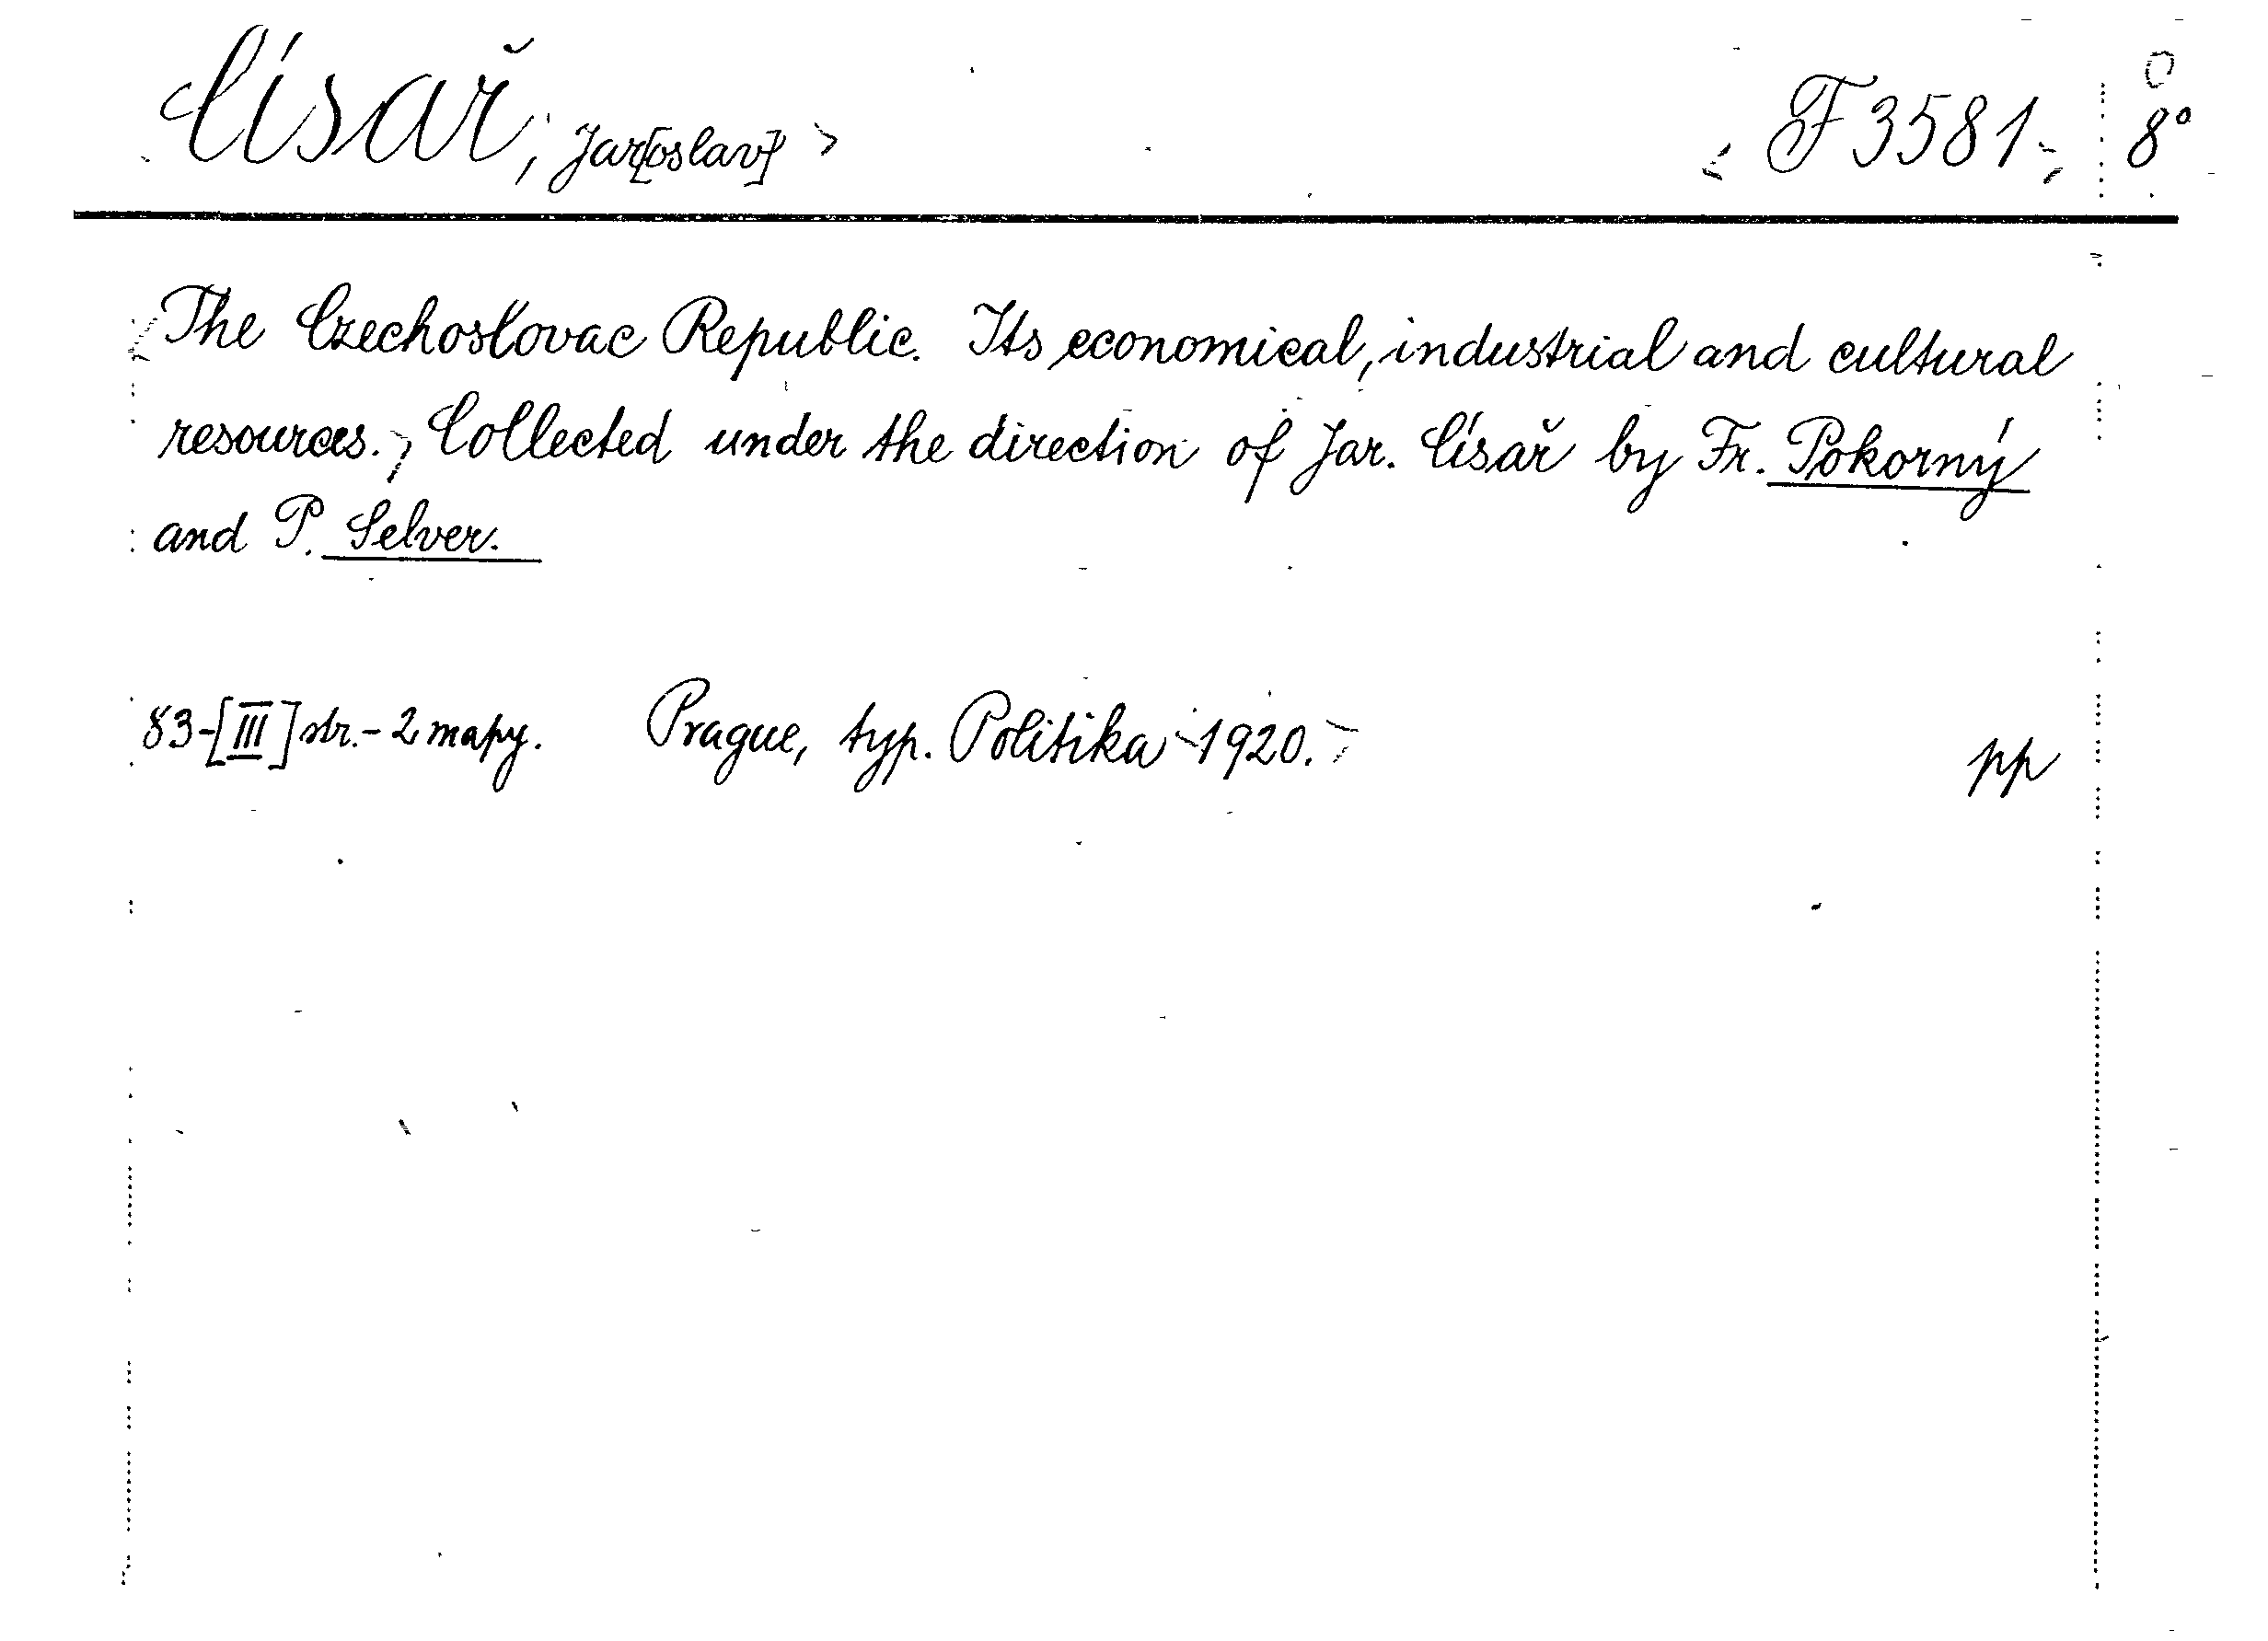 Císař, Jar[oslav] F 3581 8°
The Czechoslovac Republic. Its economical, industrial and cultural
resources. Collected under the direction of Jar. Císař by Fr. Pokorný
and P. Selver.
83-[III] str. - 2 mapy. Prague, typ. Politika 1920. pp